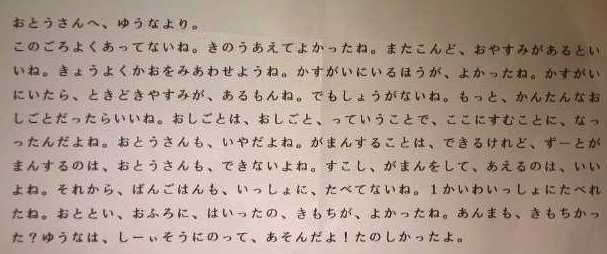 おとうさんへ、ゆうなより。
このごろよくあってないね。きのうあえてよかったね。またこんど、おやすみがあるとい
いね。きょうよくかおをみあわせようね。かすがいにいるほうが、よかったね。かすがい
にいたら、ときどきやすみが、あるもんね。でもしょうがないね。もっと、かんたんなお
しごとだったらいいね。おしごとは、おしごと、っていうことで、ここにすむことに、なっ
ったんだよね。おとうさんも、いやだよね。がまんすることは、できるけれど、ずーとが
まんするのは、おとうさんも、できないよね。すこし、がまんをして、あえるのは、いい
よね。それから、ばんごはんも、いっしょに、たべてないね。１かいわいっしょにたべれ
たね。おととい、おふろに、はいったの、きもちが、よかったね。あんまも、きもちかっ
た？ゆうなは、しーぃそうにのって、あそんだよ！たのしかったよ。